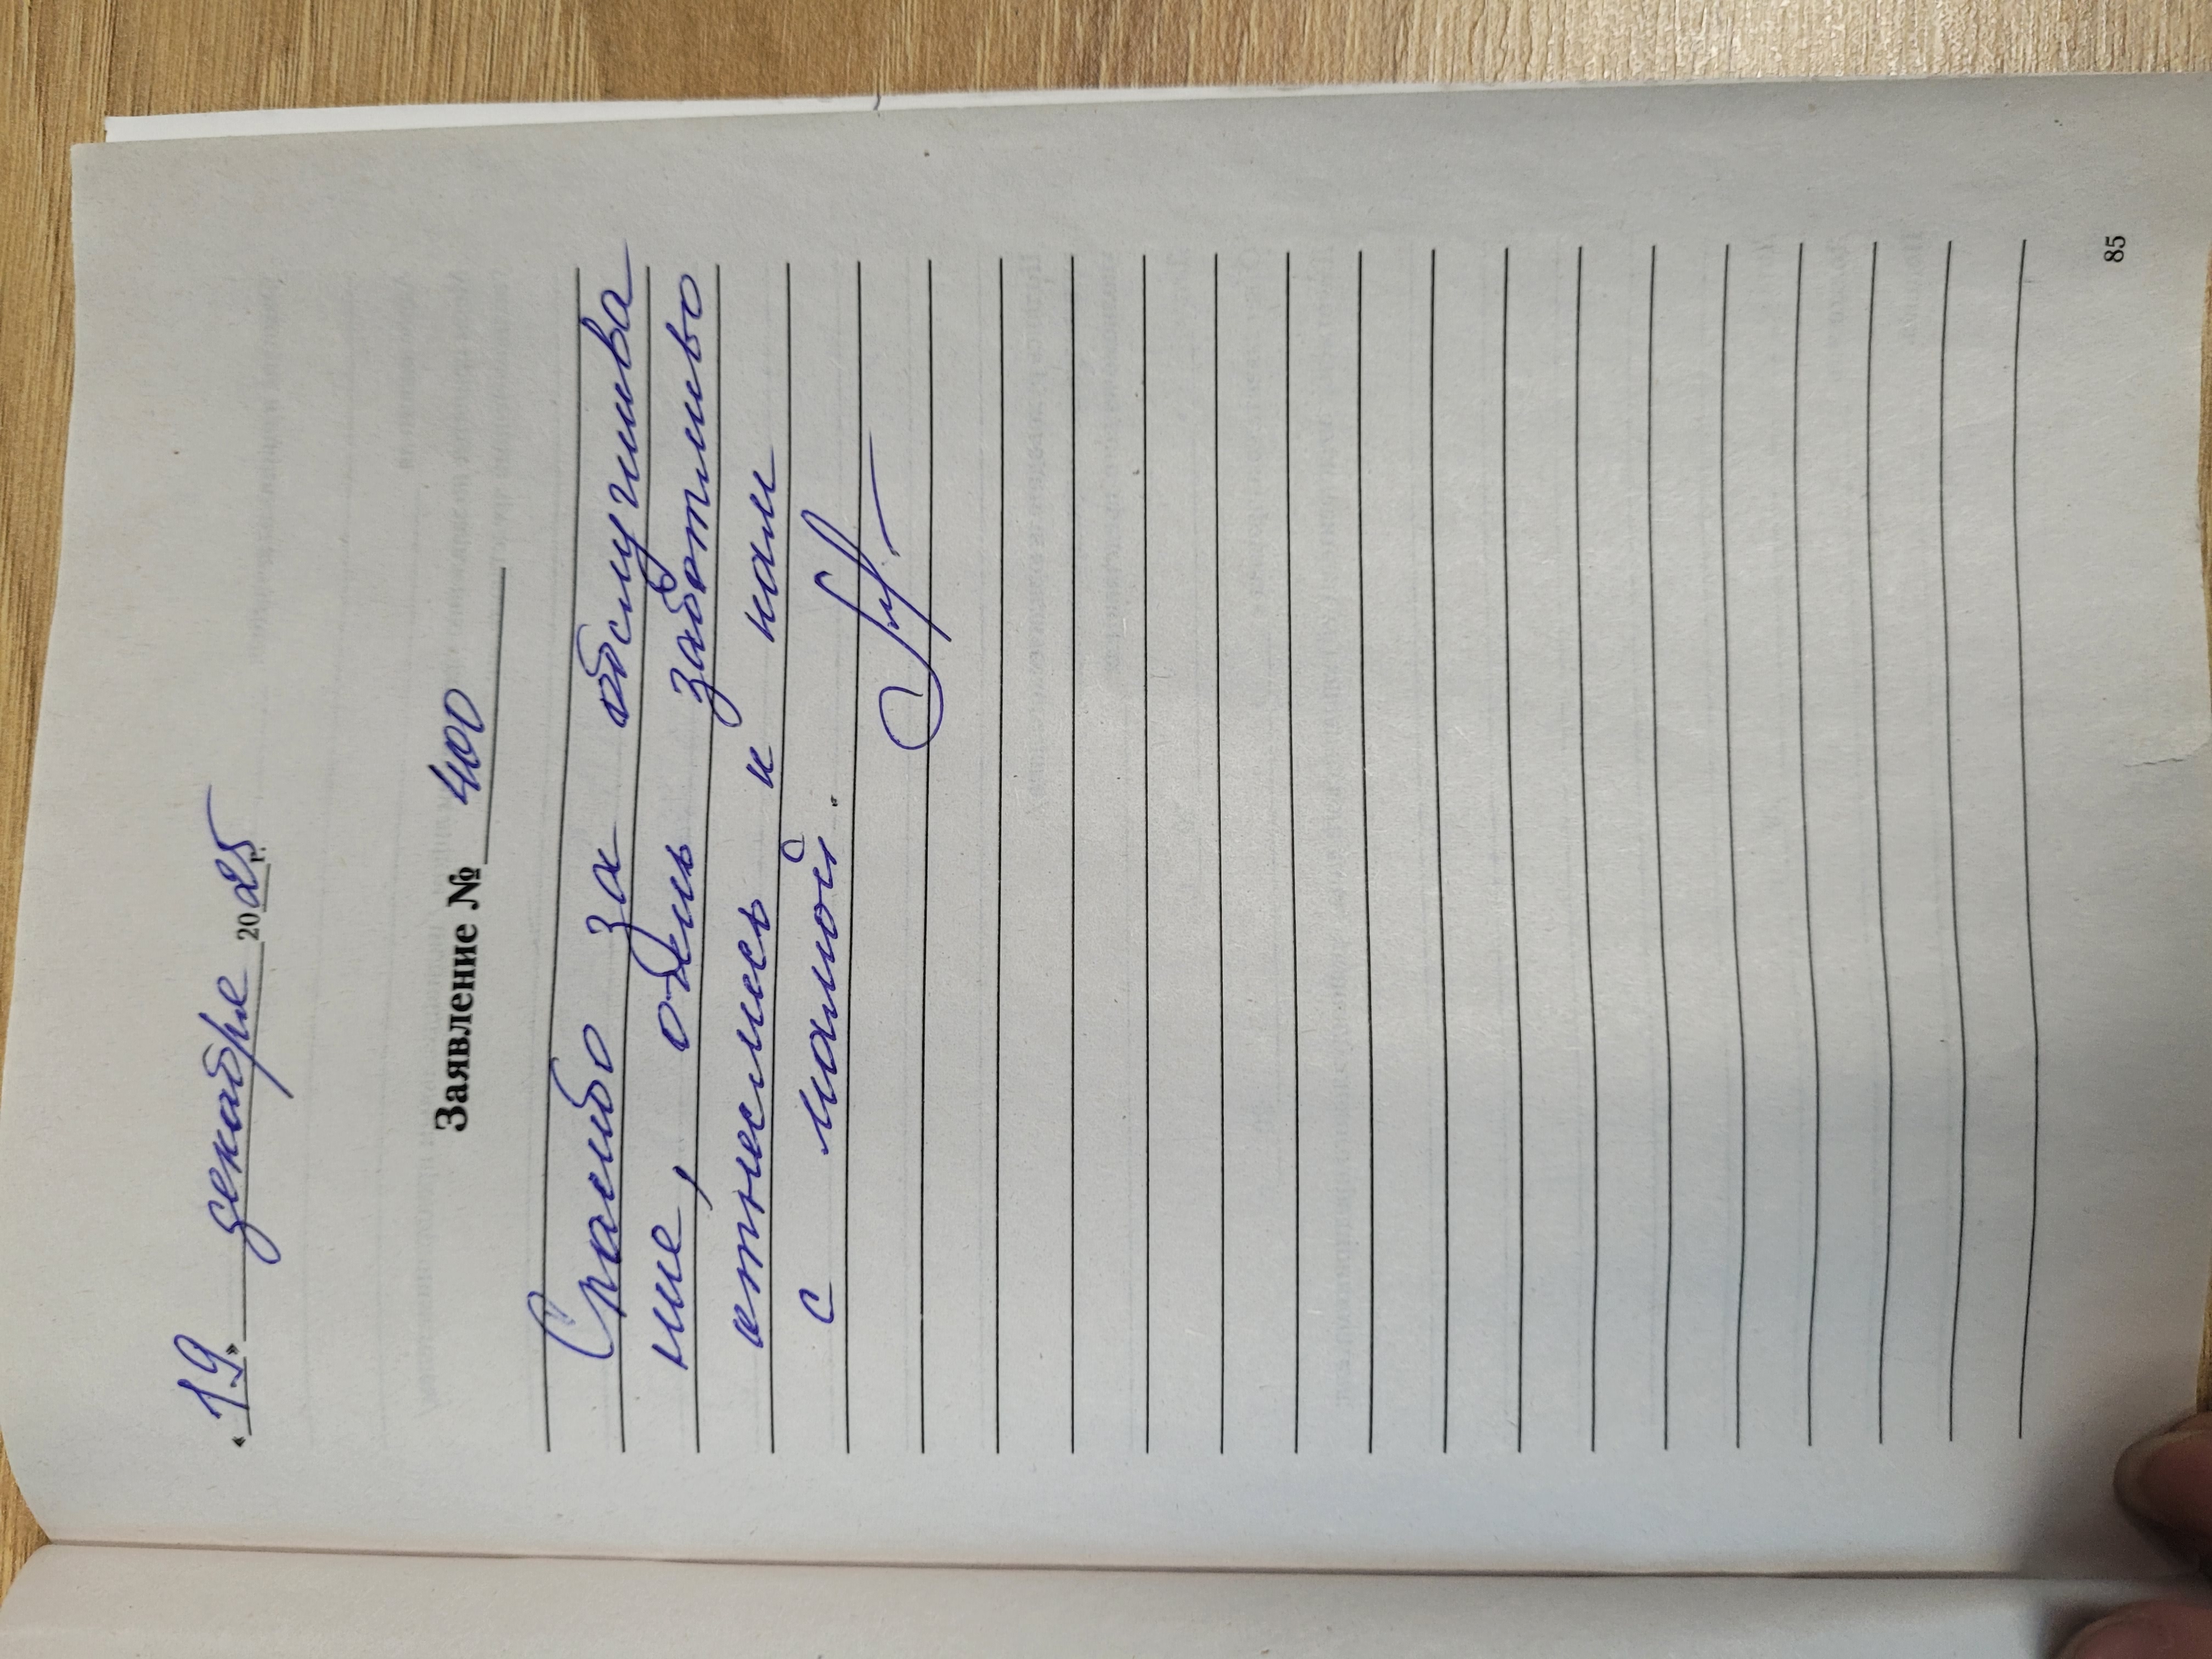 « 19 » декабря 2025 г.
Заявление № 400
Спасибо за обслужива
ние, очень заботливо
отнеслись к нам
с мамой.
85